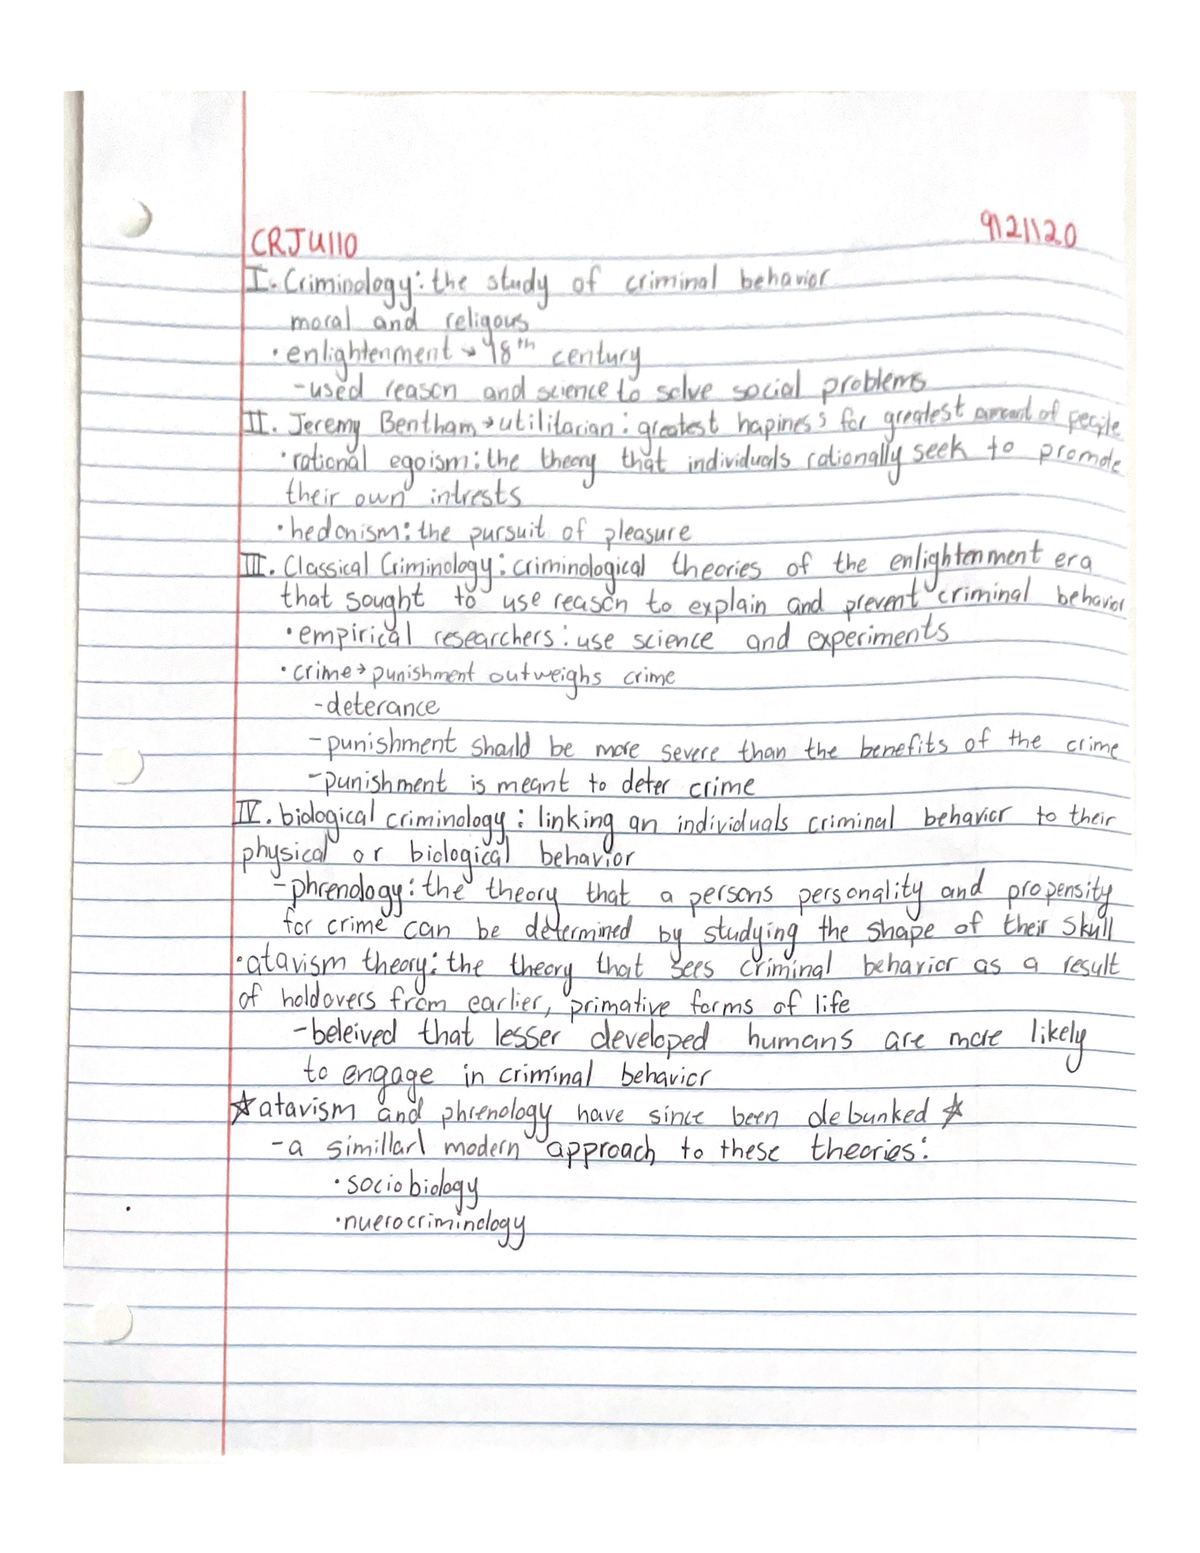 CRJU110 9/21/20
I. Criminology: the study of criminal behavior
moral and religous
• enlightenment → 18th century
-used reason and science to solve social problems
II. Jeremy Bentham → utilitarian: greatest hapiness for greatest amount of people
• rational egoism: the theory that individuals rationally seek to promote
their own intrests
• hedonism: the pursuit of pleasure
III. Classical Criminology: criminological theories of the enlightenment era
that sought to use reason to explain and prevent criminal behavior
• empirical researchers: use science and experiments
• crime → punishment outweighs crime
-deterance
-punishment should be more severe than the benefits of the crime
-punishment is meant to deter crime
IV. biological criminology: linking an individuals criminal behavior to their
physical or biological behavior
-phrenology: the theory that a persons personality and propensity
for crime can be determined by studying the shape of their skull
• atavism theory: the theory that sees criminal behavior as a result
of holdovers from earlier, primative forms of life
-beleived that lesser developed humans are more likely
to engage in criminal behavior
☆ atavism and phrenology have since been debunked ☆
-a simillarl modern approach to these theories:
• sociobiology
• nuerocriminology